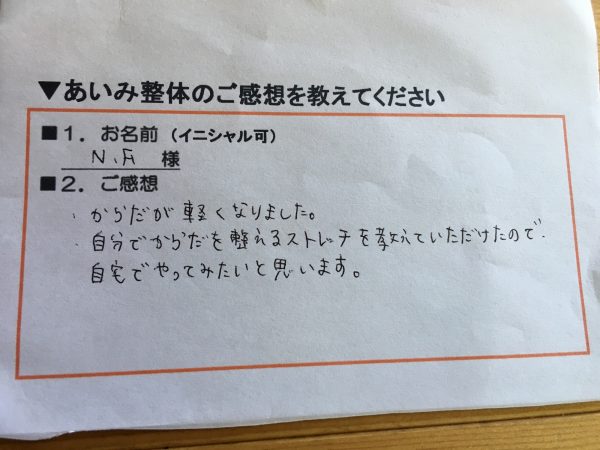 ▼あいみ整体のご感想を教えてください
■1．お名前（イニシャル可）
N.A 様
■2．ご感想
・からだが軽くなりました。
・自分でからだを整えるストレッチを教えていただけたので、
自宅でやってみたいと思います。